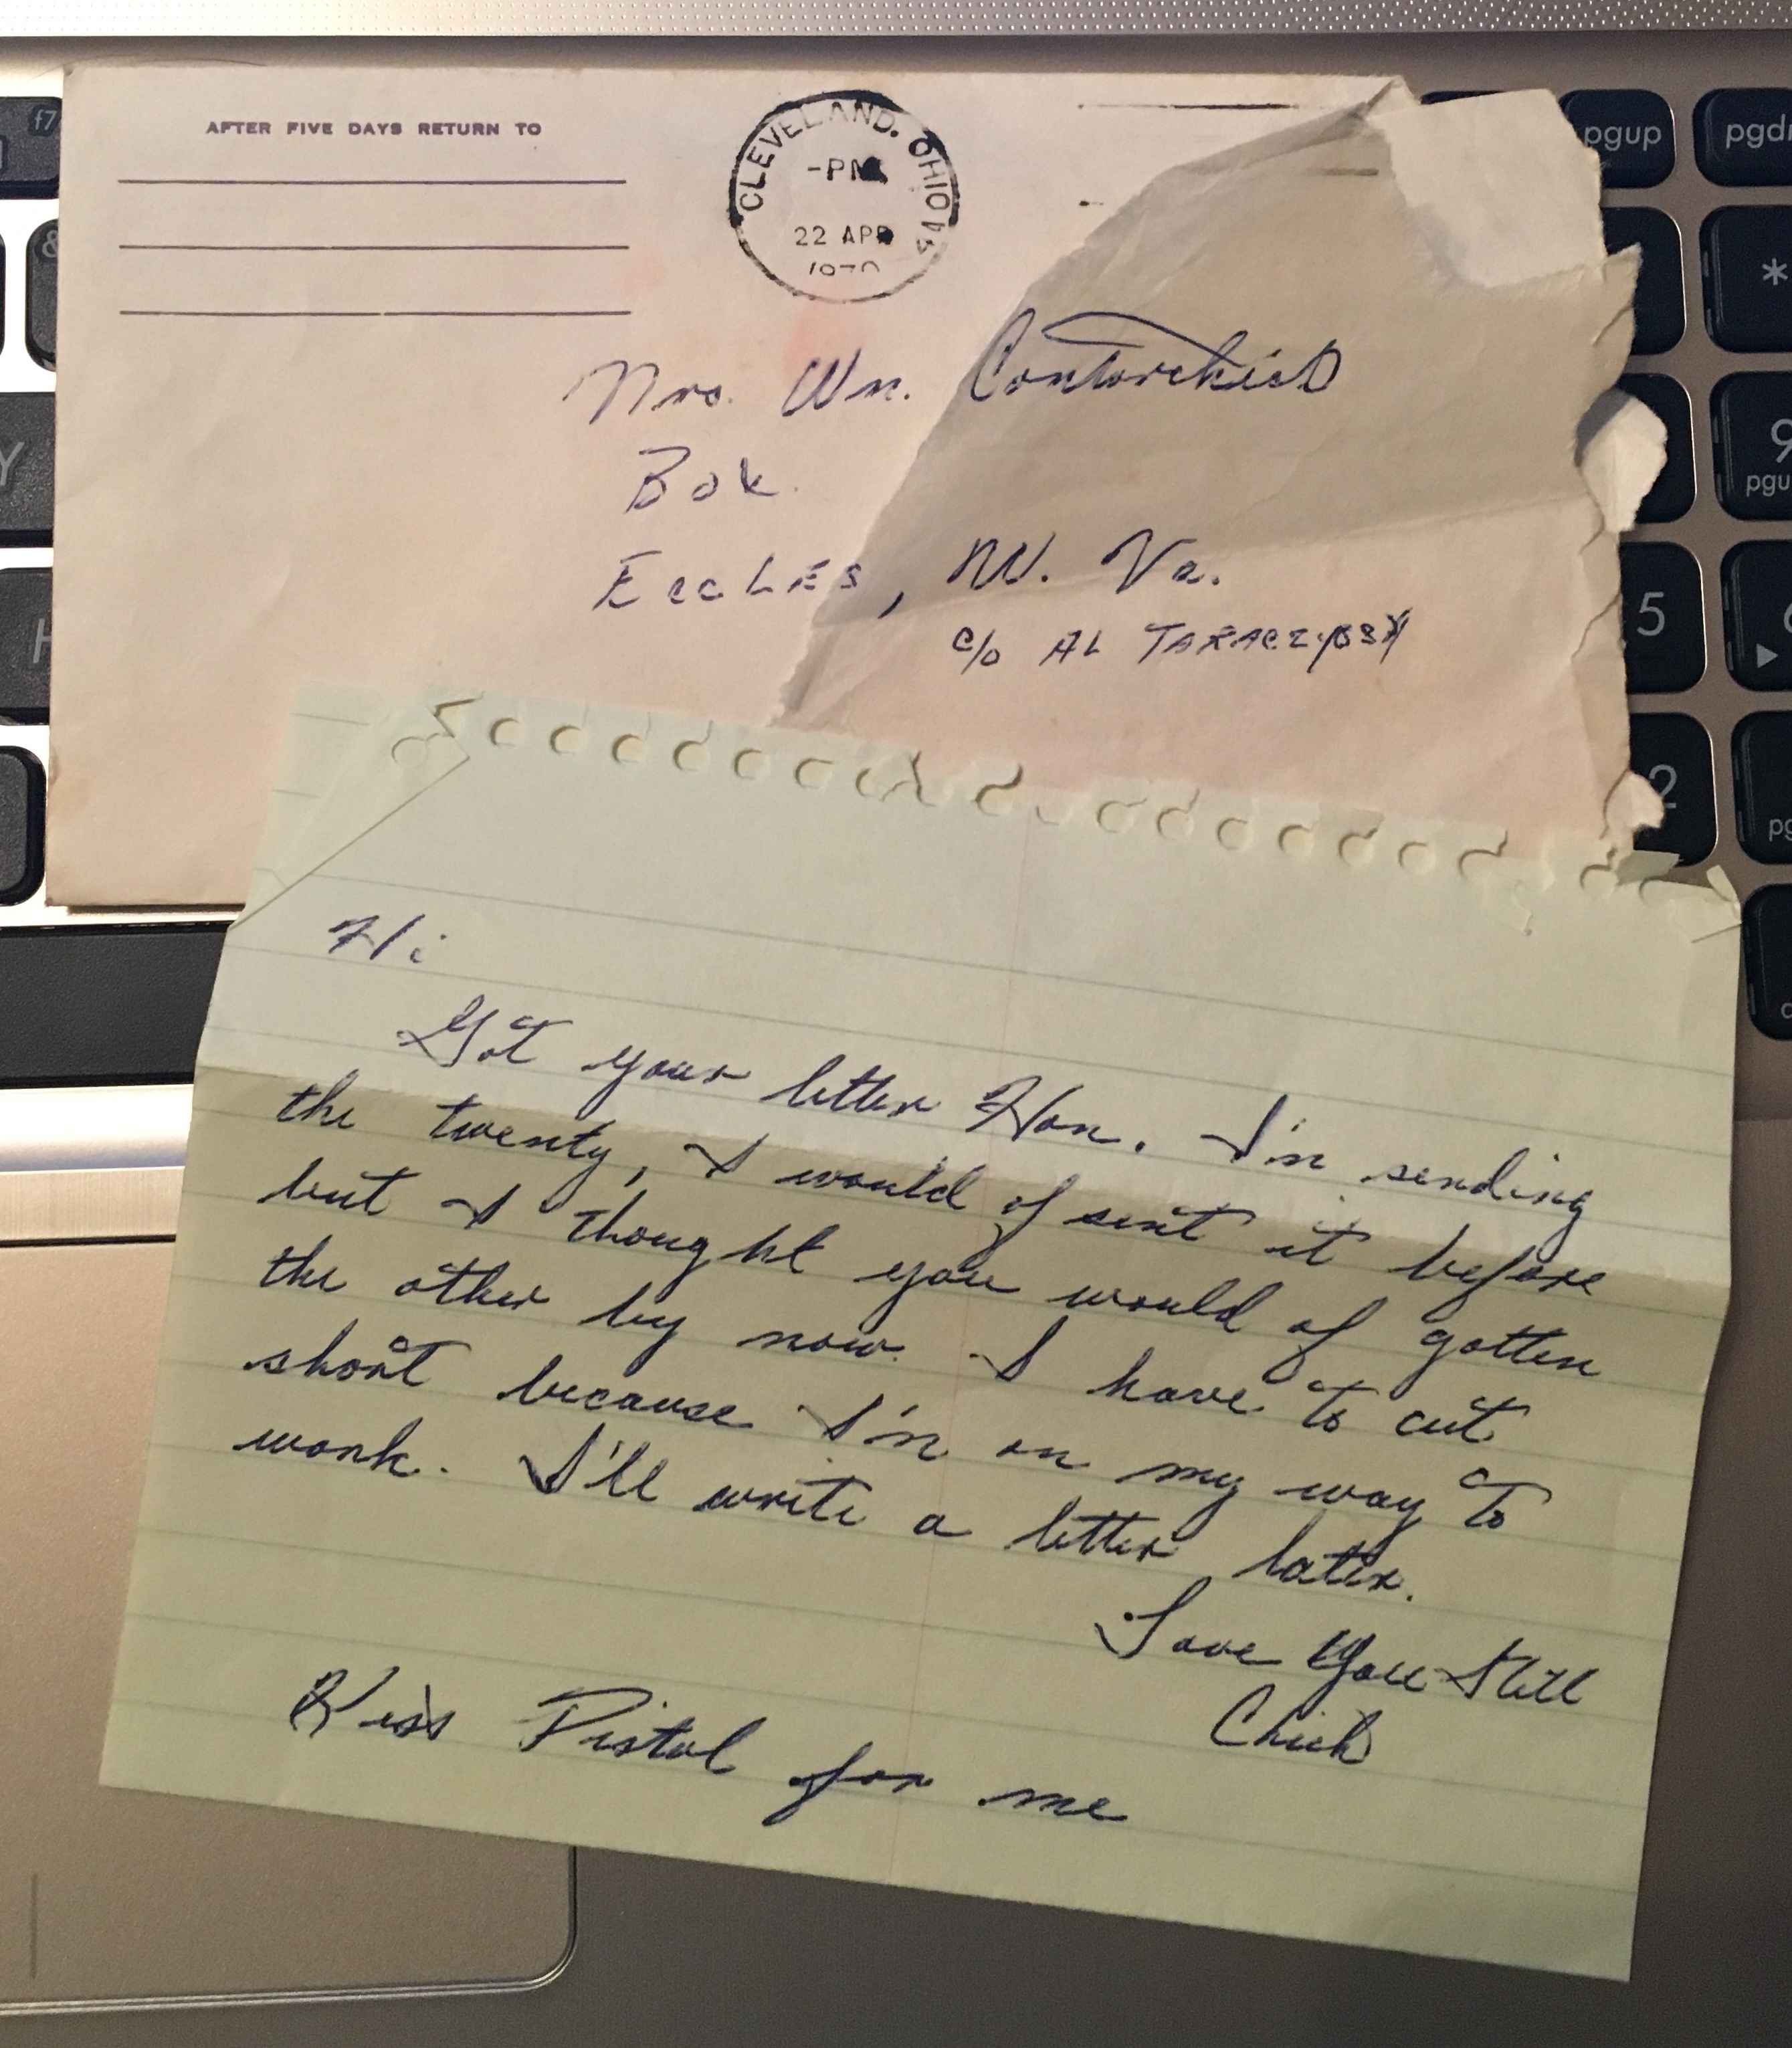 AFTER FIVE DAYS RETURN TO
CLEVELAND, OHIO
-PM
22 APR
1970
Mrs. Wm.
Box
Eccles, W. Va.
c/o AL
Hi
Got your letter Hon. I'm sending
the twenty, I would of sent it before
but I thought you would of gotten
the other by now. I have to cut
short because I'm on my way to
work. I'll write a letter later.
Love You Still
Chick
Kiss Pistol for me
f7
&
Y
H
pgup
pgdn
*
9
pgup
5
6
2